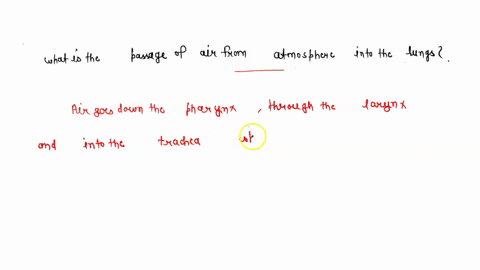 what is the passage of air from atmosphere into the lungs?.
Air goes down the pharynx , through the larynx
and into the trachea st